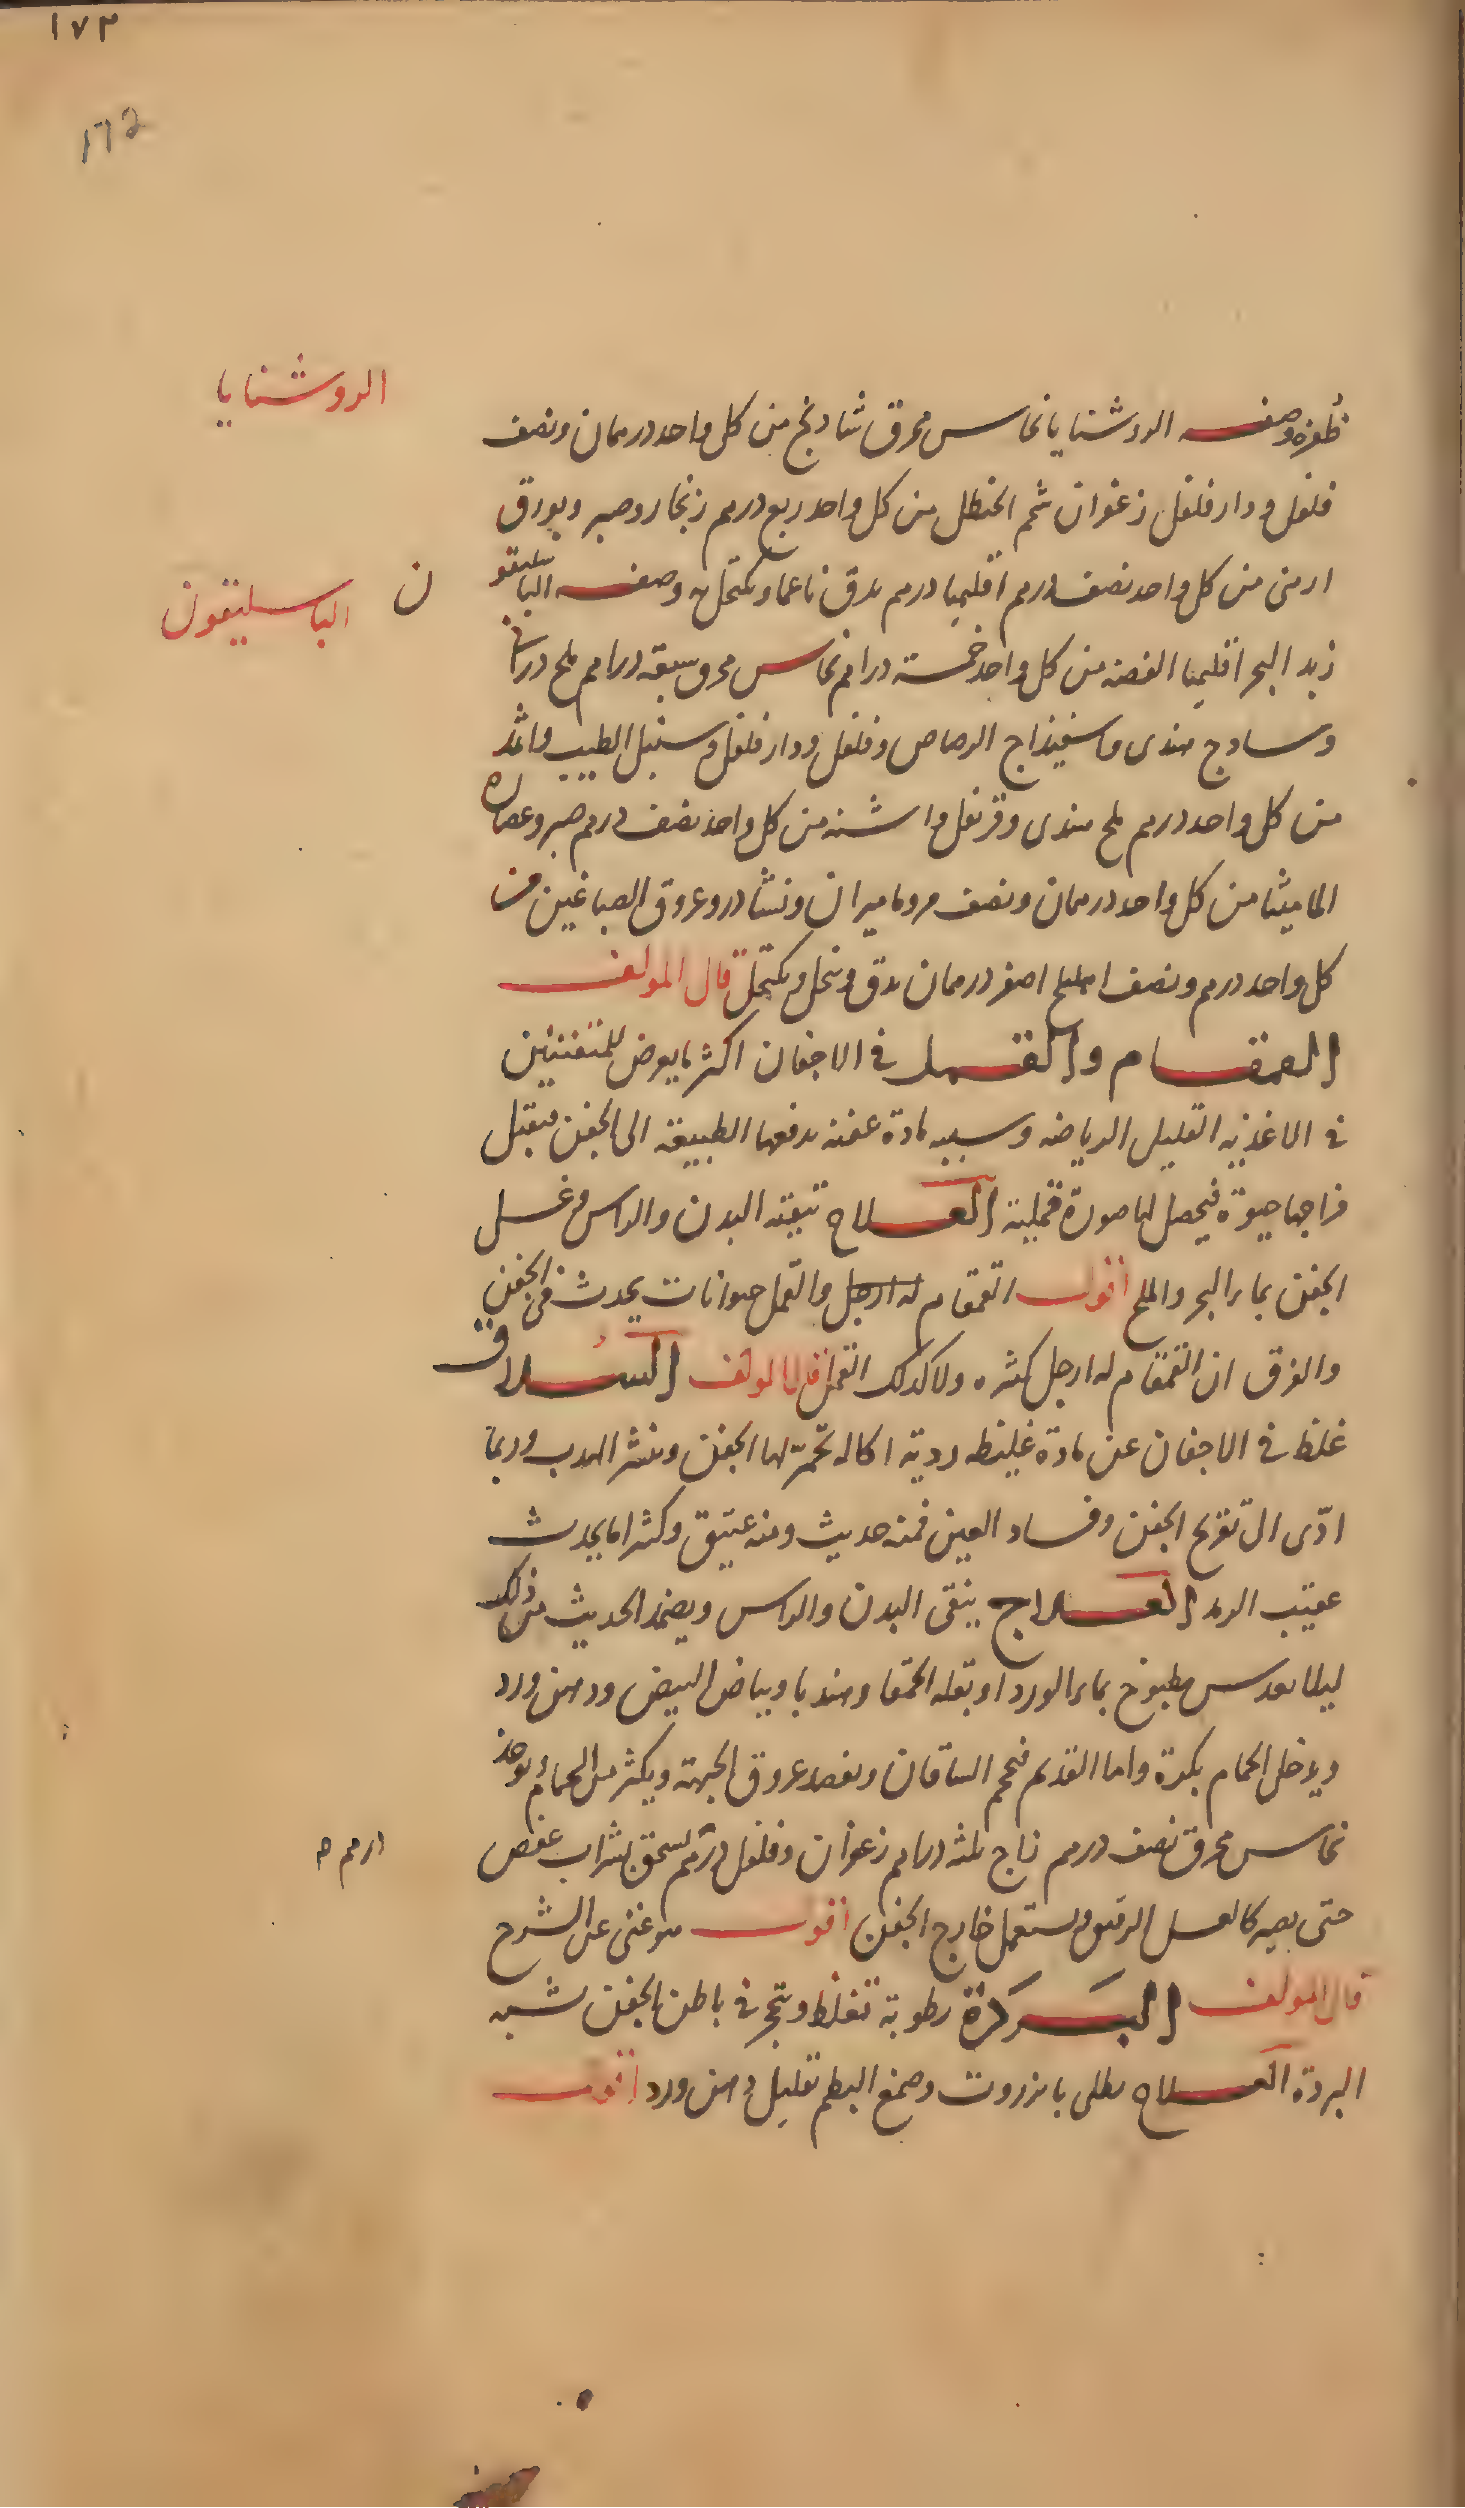 ١٧٣
١٧٢
الروشنايا
ظفره وصفه الروشنايا نحاس محرق شادنج من كل واحد درهمان ونصف
فلفل ودارفلفل زعفران شحم الحنظل من كل واحد ربع درهم زنجار وصبر وبورق
ارمنى من كل واحد نصف درهم اقليميا درهم يدق ناعما ويكتحل به وصفه الباسليقو
ن الباسليقون
زبد البحر اقليميا الفضه من كل واحد خمسة دراهم نحاس محرق سبعة دراهم ملح درانى
وسادج هندى واسفيذاج الرصاص وفلفل ودارفلفل وسنبل الطيب واثمد
من كل واحد درهم ملح هندى وقرنفل واشنه من كل واحد نصف درهم صبر وعصاره
الماميثا من كل واحد درهمان ونصف مر وماميران ونشادر وعروق الصباغين من
كل واحد درهم ونصف اهليلج اصفر درهمان يدق وينخل ويكتحل قال المولف
القمقام والقمل فى الاجفان اكثر ما يعرض للمتفننين
فى الاغذيه القليل الرياضه وسببه مادة عفنه يدفعها الطبيعه الى الجفن فيقبل
مزاجها حيوة فيحصل لها صورة قملية العلاج تنقيته البدن والراس وغسل
الجفن بماء البحر والملح اقول القمقام له ارجل والقمل حيوانات يحدث فى الجفن
والفرق ان القمقام له ارجل كثيره ولا كذلك القمل قال المولف السلاق
غلظ فى الاجفان عن مادة غليظه ردية اكاله تحمر لها الجفن وينثر الهدب وربما
ادّى الى تقرح الجفن وفساد العين فمنه حديث ومنه عتيق وكثيرا ما يحدث
عقيب الرمد العلاج ينقى البدن والراس ويضمد الحديث من ذلك
ليلا بعدس مطبوخ بماء الورد او بقله الحمقا وهندبا وبياض البيض ودهن ورد
ويدخل الحمام بكرة واما القديم فيحجم الساقان ويفصد عروق الجبهة ويكثر من الحمام ويوخذ
نحاس محرق نصف درهم زاج ثلثه دراهم زعفران وفلفل درهم يسحق بشراب عفص
درهم م
حتى يصير كالعسل الرقيق ويستعمل خارج الجفن اقول هو غنى عن الشرح
قال المولف البردة رطوبة تغلظ وتتحجر فى باطن الجفن شبه
البردة العلاج يطلى بانزروت وصمغ البطم بقليل دهن ورد اقول